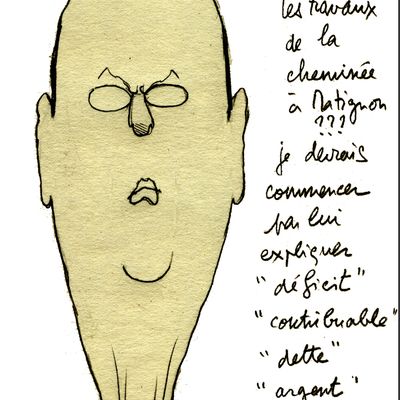 les travaux
de la
cheminée
à Matignon
???
je devrais
commencer
par lui
expliquer
"déficit"
"contribuable"
"dette"
"argent"